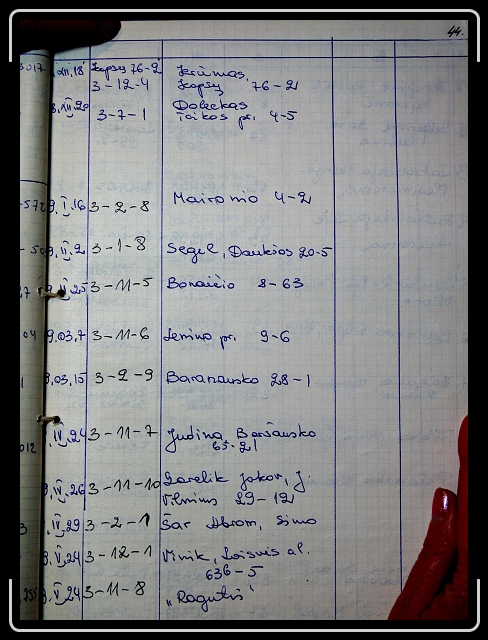 44.
3017 XII.18 Kopsų 76-2 Jerumas,
3-12-4 Kopsų 76-21
8.XII.20 3-7-1 Doleckas
Taikos pr. 4-5
-572 9.I.16 3-2-8 Maironio 4-2
-50 9.II.2 3-1-8 Segel, Daukšos 20-5
27 9.II.25 3-11-5 8-63
04 9.03.7 3-11-6 Lenino pr. 9-6
9.03.15 3-2-9 Baranausko 28-1
012 IV.24 3-11-7 Judina, Baršausko
65-21
9.IV.26 3-11-10 Jakov, J.
Vilniaus 29-12
3 .IV.29 3-2-1 Šar Abrom, Simo
9.V.24 3-12-1 Vinik, Laisvės al.
636-5
255 9.V.24 3-11-8 „Ragutis"